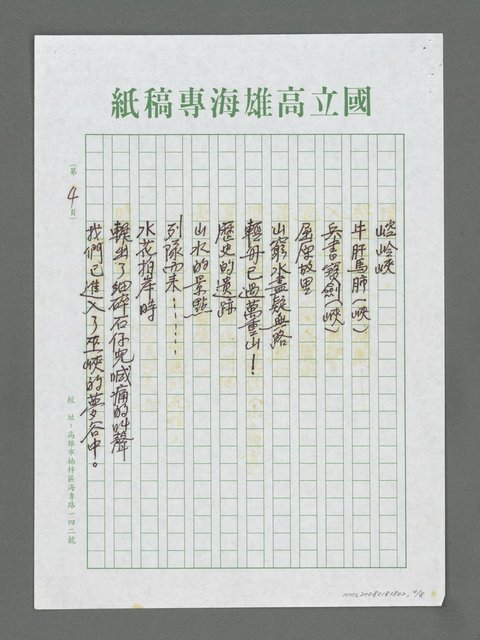 國立高雄海專稿紙
崆岭峽
牛肝馬肺(峽)
兵書寶劍(峽)
屈原故里
山窮水盡疑無路
輕舟已過萬重山！
歷史的遺跡
山水的景點
列隊而來……
水花拍岸時
輾出了細碎石仔兒喊痛的叫聲
我們已進入了巫峽的夢谷中。
(第4頁)
校址：高雄市楠梓區海專路一四二號
NMTL20080181802, 4/8